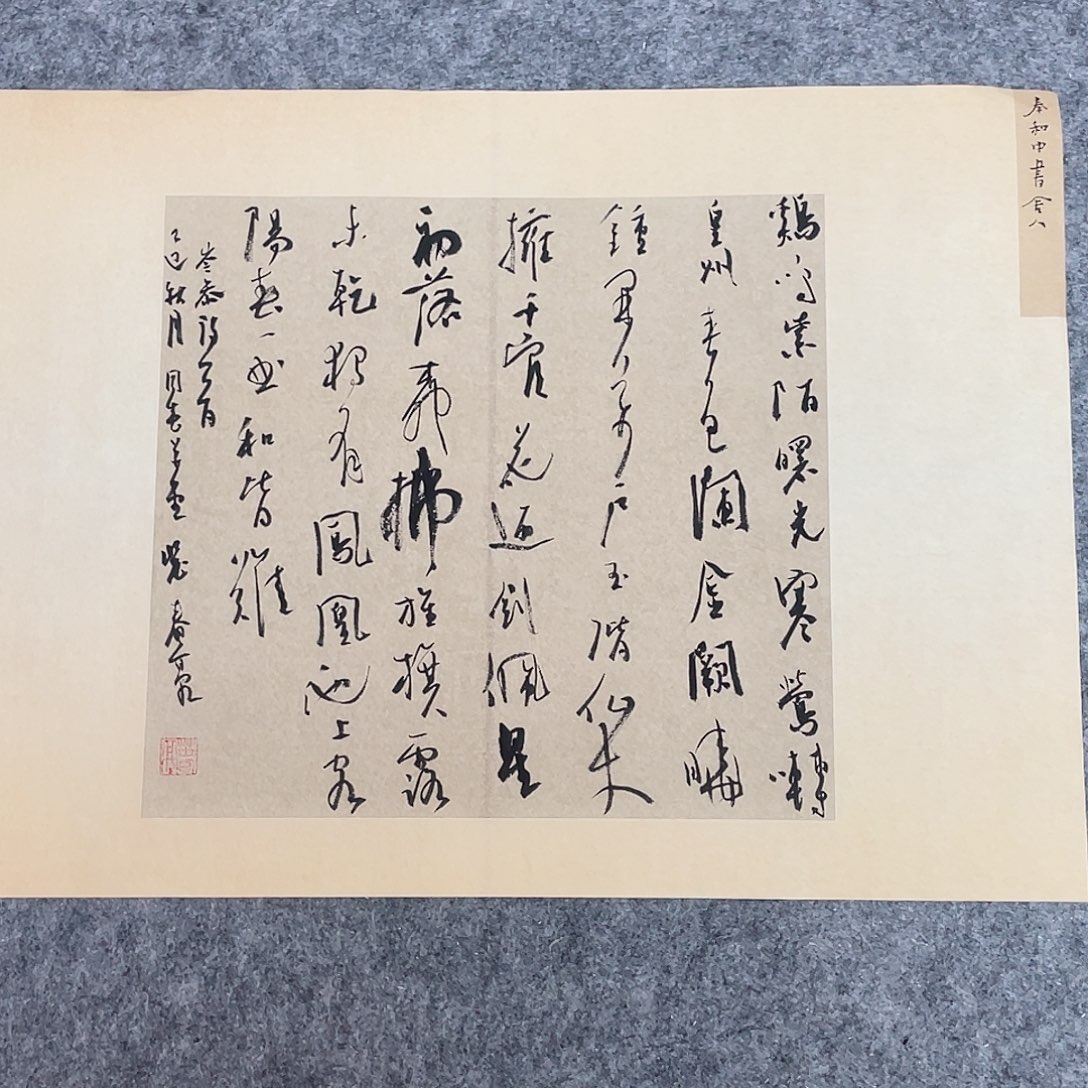 奉和中書舍人
鷄鳴紫陌曙光寒鶯囀
皇州春色闌金闕曉
鐘開萬戶玉階仙仗
擁千官花迎劍佩星
初落柳拂旌旗露
未乾獨有鳳凰池上客
陽春一曲和皆難
岑參詩一首
乙巳秋月